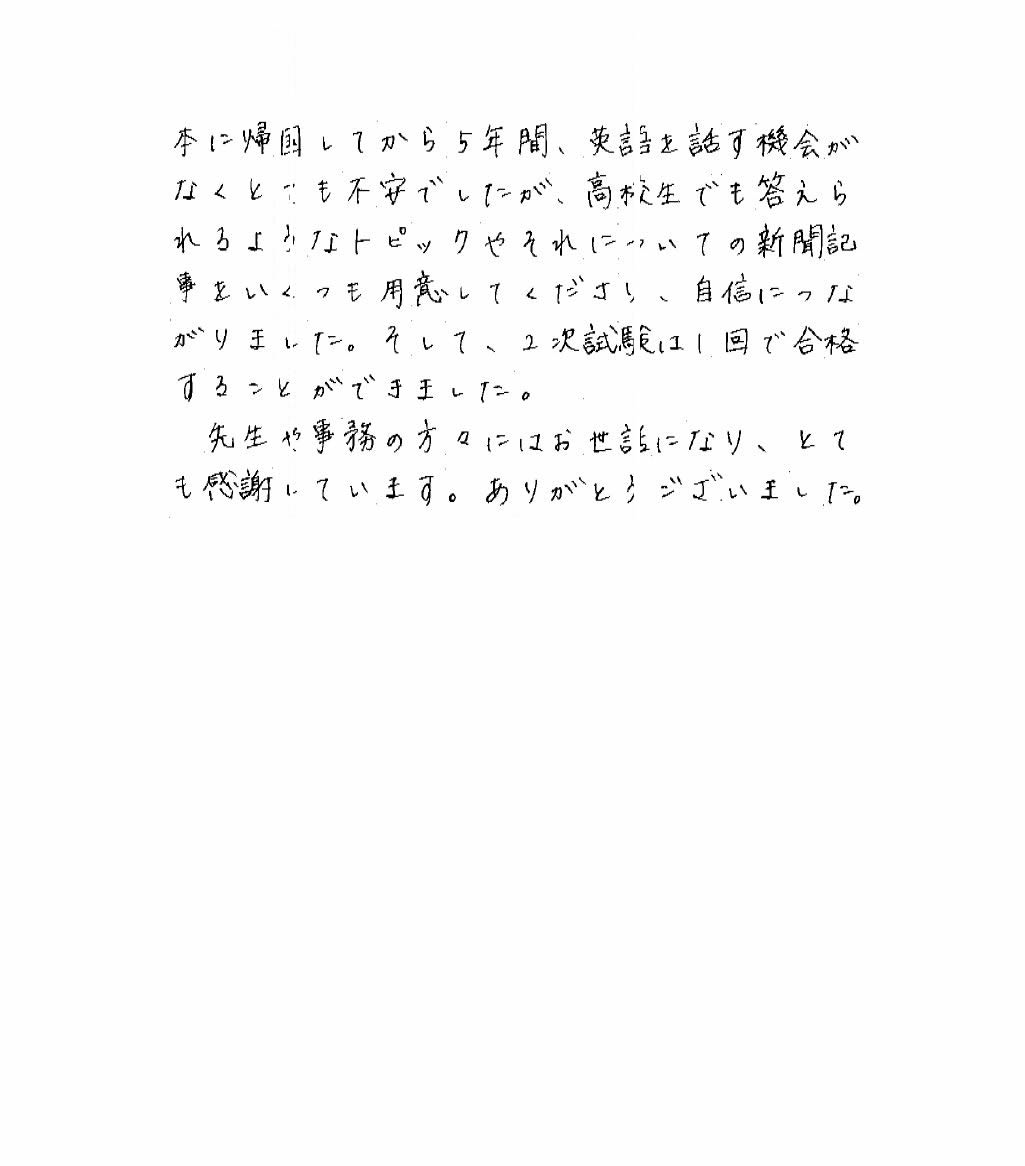 本に帰国してから5年間、英語を話す機会が
なくとても不安でしたが、高校生でも答えら
れるようなトピックやそれについての新聞記
事をいくつも用意してくださり、自信につな
がりました。そして、2次試験は1回で合格
することができました。
先生や事務の方々にはお世話になり、とて
も感謝しています。ありがとうございました。